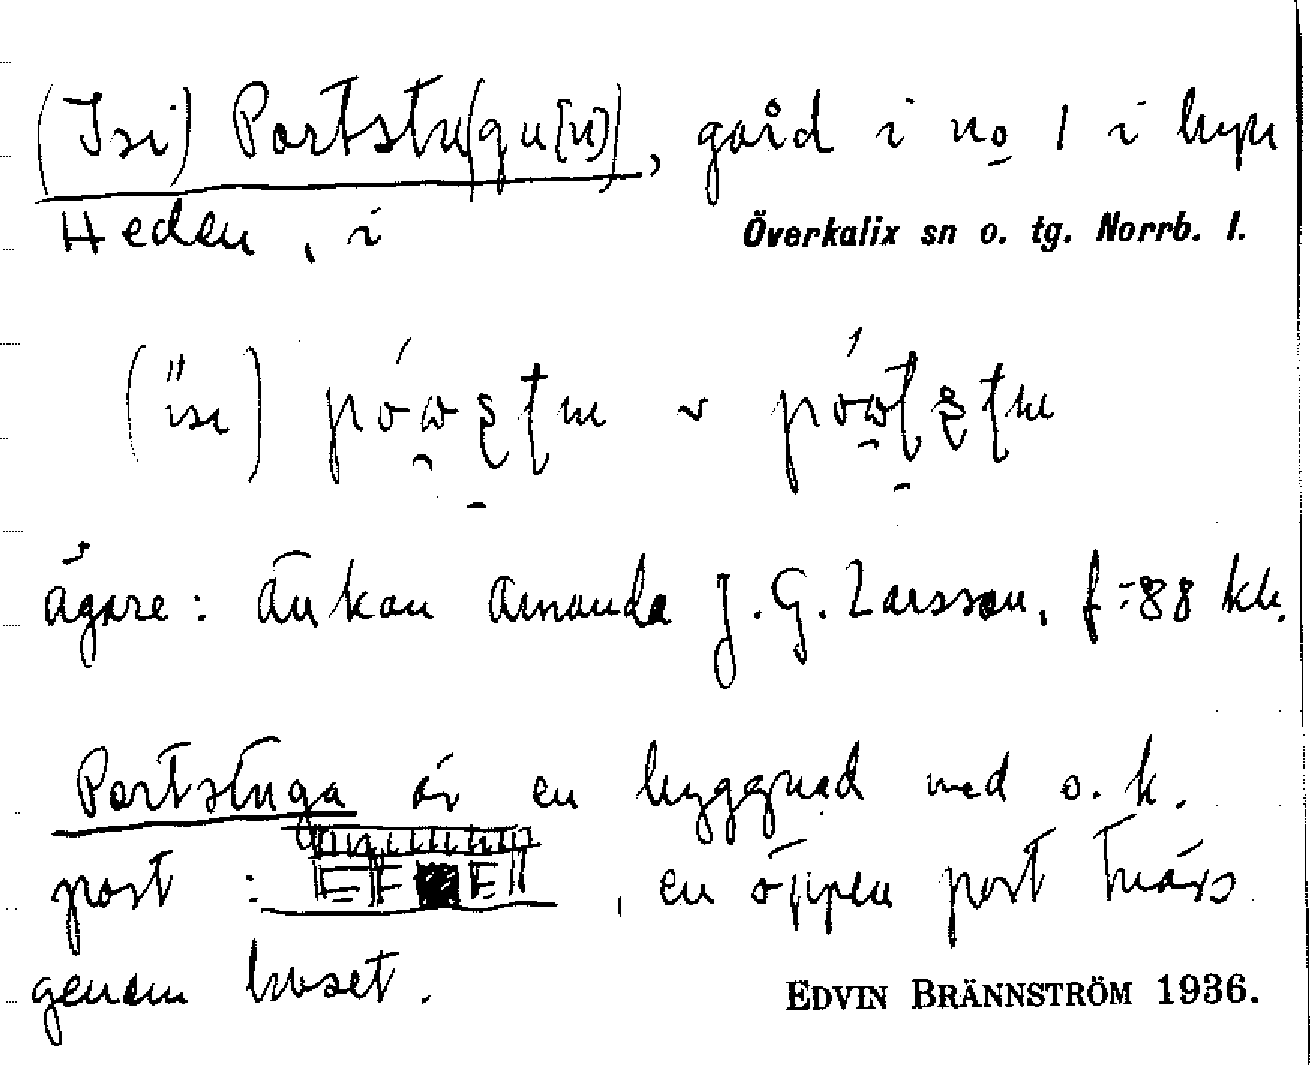 (Isi) Portstu(gu[n]), gård i no 1 i byn
Heden, i Överkalix sn o. tg. Norrb. l.
ägare: änkan Amanda J. G. Larsson, f=88
Portstuga är en byggnad med s. k.
port : , en öppen port tvärs
genom huset.
EDVIN BRÄNNSTRÖM 1936.